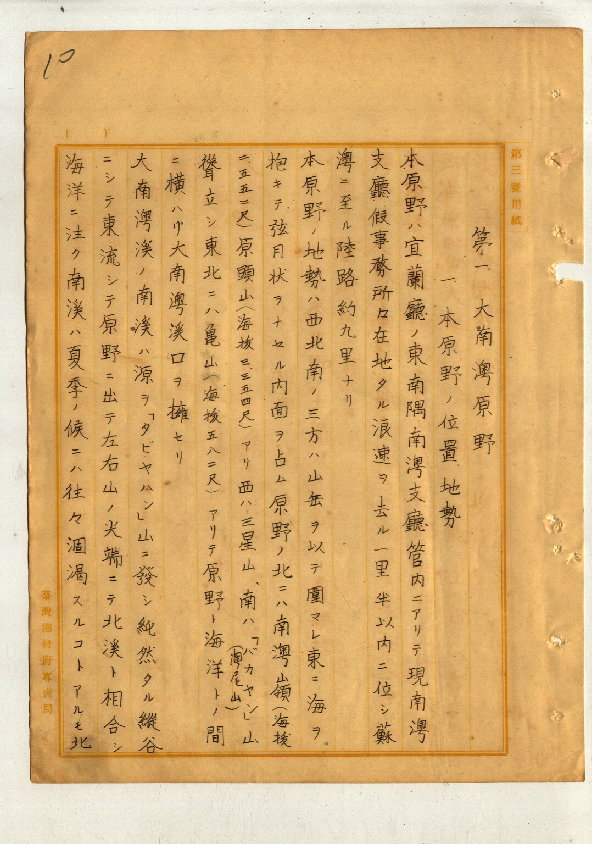 10
第三號用紙
第一 大南澳原野
一 本原野ノ位置、地勢
本原野ハ宜蘭廳ノ東南隅南澳支廳管内ニアリテ現南澳
支廳假事務所々在地タル浪速ヲ去ル一里半以内ニ位シ蘇
澳ニ至ル陸路約九里ナリ
本原野ノ地勢ハ西北南ノ三方ハ山岳ヲ以テ圍マレ東ニ海ヲ
抱キテ弦月狀ヲナセル内面ヲ占ム原野ノ北ニハ南澳嶺(海拔
二、五五二尺)原頭山(海拔三、三五四尺)アリ西ハ三星山、南ハ「バカヤン」山
(南尾山)
聳立シ東北ニハ亀山(海拔五八二尺)アリテ原野ト海洋トノ間
ニ橫ハリ大南澳溪口ヲ擁セリ
大南澳溪ノ南溪ハ源ヲ「タビヤハン」山ニ發シ純然タル縱谷
ニシテ東流シテ原野ニ出テ左右山ノ尖端ニテ北溪ト相合シ
海洋ニ注ク南溪ハ夏季ノ候ニハ往々涸渴スルコトアルモ北
臺灣總督府專賣局